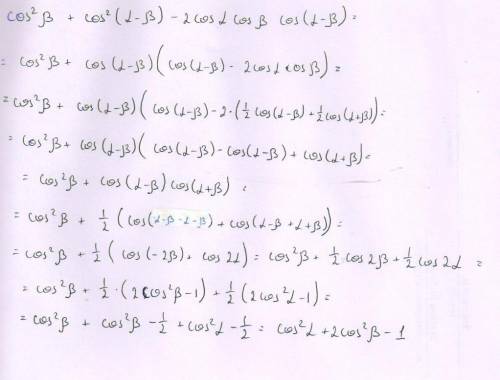 cos²β + cos²(α-β) - 2cosα cosβ cos(α-β) =
= cos²β + cos(α-β)(cos(α-β) - 2cosα cosβ) =
= cos²β + cos(α-β)(cos(α-β) - 2·(½cos(α-β) + ½cos(α+β)) =
= cos²β + cos(α-β)(cos(α-β) - cos(α-β) + cos(α+β) =
= cos²β + cos(α-β) cos(α+β) =
= cos²β + ½(cos(α-β-α-β) + cos(α-β+α+β)) =
= cos²β + ½(cos(-2β) + cos2α) = cos²β + ½cos2β + ½cos2α =
= cos²β + ½·(2cos²β-1) + ½(2cos²α-1) =
= cos²β + cos²β - ½ + cos²α - ½ = cos²α + 2cos²β - 1